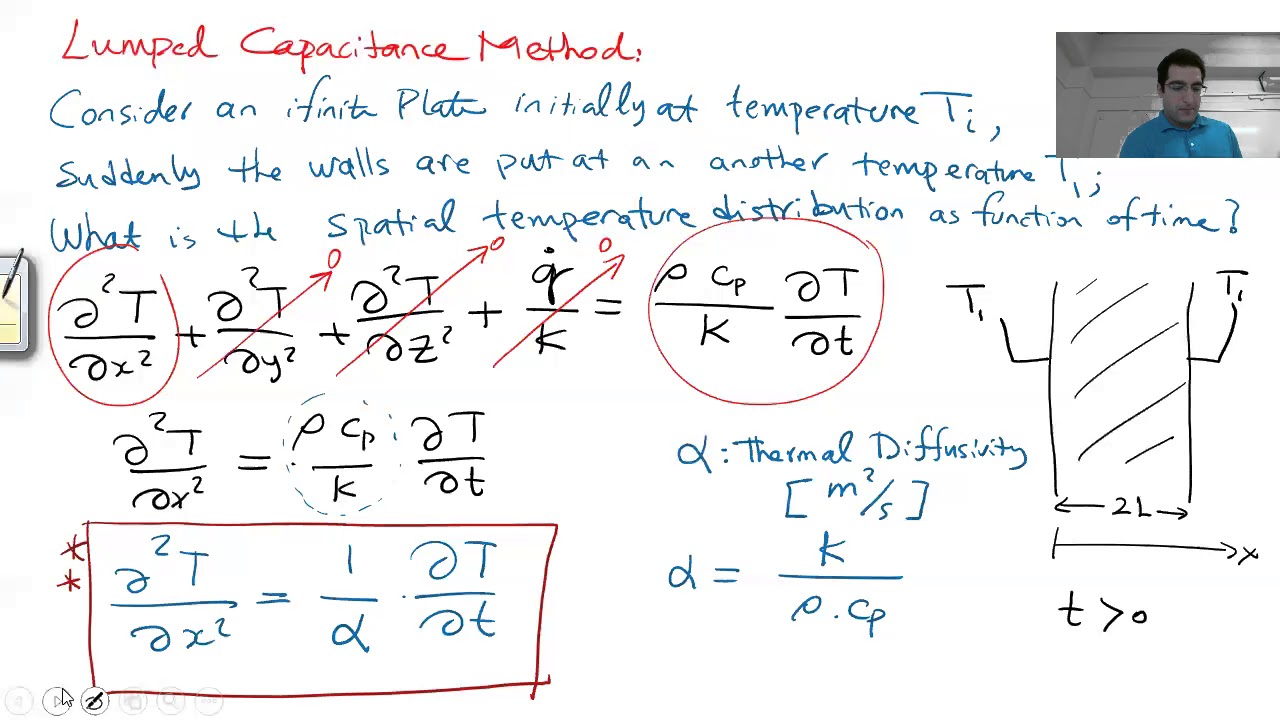 Lumped Capacitance Method:
Consider an ifinite Plate initially at temperature Ti,
Suddenly the walls are put at an another temperature T₁;
What is the spatial temperature distribution as function of time?
∂²T/∂x² + ∂²T/∂y² + ∂²T/∂z² + q̇/k = ρ cp/k ∂T/∂t
0 0 0
T₁ T₁
∂²T/∂x² = ρ cp/k · ∂T/∂t
α: Thermal Diffusivity
[m²/s]
2L
x
** ∂²T/∂x² = 1/α · ∂T/∂t
α = k/ρ.cp
t>0